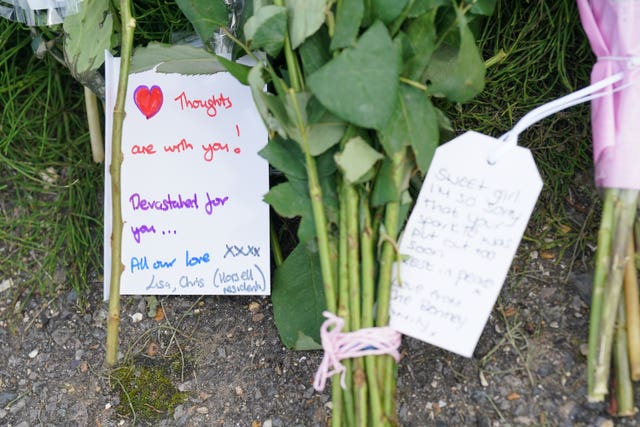 Thoughts
are with you!
Devastated for
you...
All our love xxxx
Lisa, Chris (Horsell
residents)
Sweet girl
I'm so sorry
that your
sparkle was
put out too
soon
Rest in peace
x
Love from
the
family